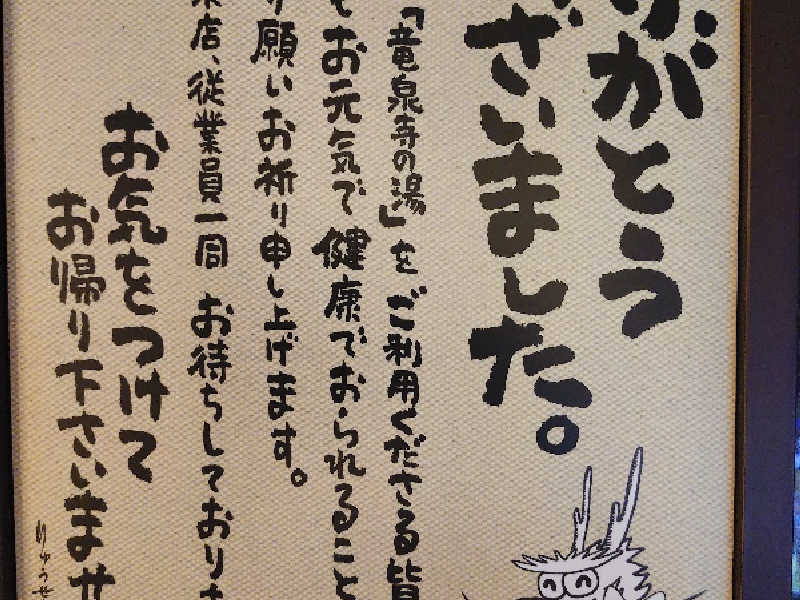 がとう
ざいました。
「竜泉寺の湯」をご利用くださる皆
もお元気で健康でおられること
り願いお祈り申し上げます。
来店、従業員一同 お待ちしておりま
お気をつけて
お帰り下さいませ
りゅうせ